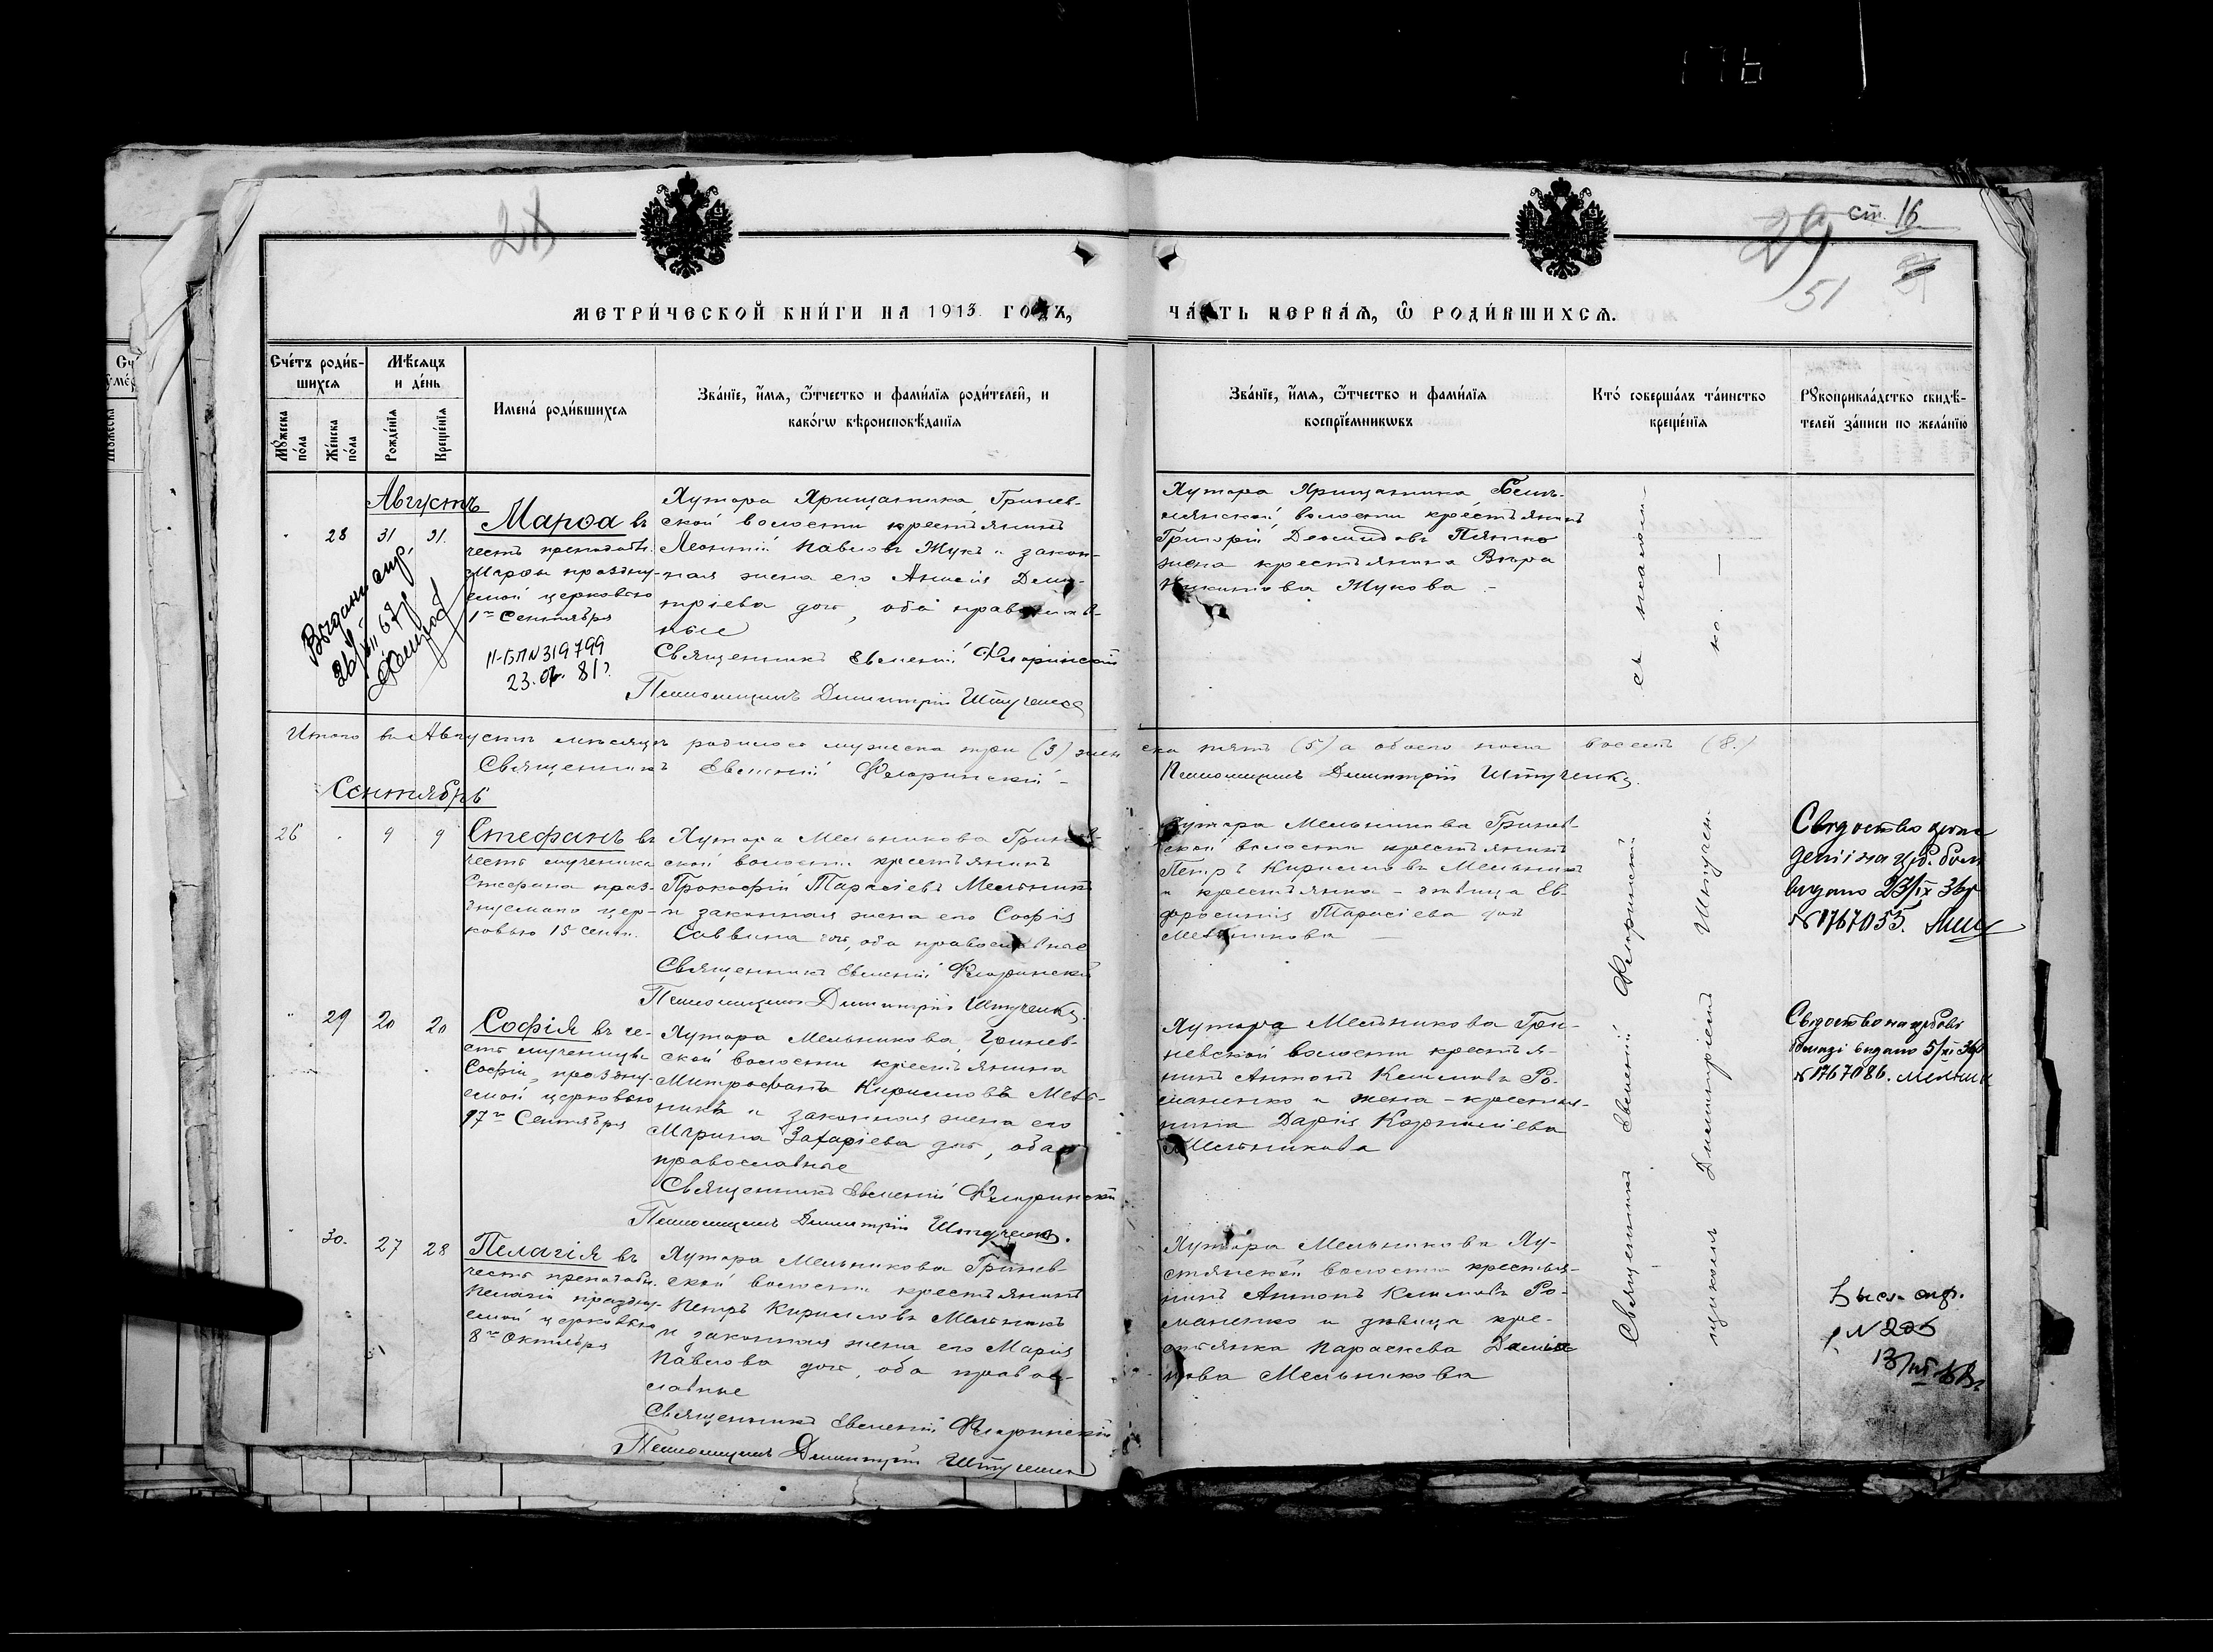 176
28
29 ст. 16
51
МЕТРИ́ЧЕСКОЙ КНИ́ГИ НА 1913 ГОДЪ,
ЧА́СТЬ ПЕРВАЯ, Ѡ РОДИ́ВШИХСЯ.
Сче́тъ роди́в-
шихся
Мѣ́сяцъ
и де́нь
Мꙋ́жеска по́ла
Же́нска по́ла
Рожде́нїя
Креще́нїя
Имена́ роди́вшихся
Зва́нїе, и҆́мя, ѻ҆́тчество и фами́лїя роди́телей, и
како́гѡ вѣроисповѣ́данїя
Зва́нїе, и҆́мя, ѻ҆́тчество и фами́лїя
воспрїе́мникѡвъ
Кто́ соверша́лъ та́инство
креще́нїя
Рꙋкоприкла́дство свидѣ́-
телей за́писи по жела́нїю
Августъ
28 31 31
Марѳа въ
честь преподобн.
Марѳы праздну-
емой церковью
1го Сентября
II-БП N 319799
Хутора Хрищатика, Гринев-
ской волости крестьянинъ
Леонтій Павловъ Жукъ и закон-
ная жена его Дими-
тріева доч, оба православ-
ные
Священникъ Евменій Флоринскій
Псаломщикъ Димитрій Штученко
Хутора Хрищатика
волости крестьянинъ
Григорій
жена крестьянина
Жукова
съ псалом-
Итого въ Августѣ мѣсяцѣ родилось мужеска три (3) жен
ска пять (5) а обоего пола восемь (8.)
Священникъ Евменій Флоринскій
Псаломщикъ Димитрій Штученко.
Сентябрь
26 9 9
Стефанъ въ
честь мученика
Стефана праз-
днуемаго цер-
ковью 15 Сент.
Хутора Мельникова Гринев-
ской волости крестьянинъ
Прокофій Тарасіевъ Мельникъ
и законная жена его Софія
Саввина доч, оба православные
Священникъ Евменій Флоринскій
Псаломщикъ Димитрій Штученко.
Хутора Мельникова Гринев-
ской волости крестьянинъ
Петръ Кирилловъ Мельникъ
и крестьянка - дѣвица Ев-
фросинія Тарасіева доч
Мельникова
видано 23/IX 36р
N 1767055.
29 20 20
Софія въ че-
сть мученицы
Софіи, праздну-
емой церковью
17го Сентября
Хутора Мельникова, Гринев-
ской волости крестьянина
Митрофанъ Кирилловъ Мель-
никъ и законная жена его
Захаріева доч, оба
православные
Священникъ Евменій Флоринскій
Псаломщикъ Димитрій Штученко.
Хутора Мельникова Гри-
невской волости крестья-
нинъ Антонъ Климовъ Ро-
маненко и жена - крестья-
нина Дарія Корниліева
Мельникова
видано 5/XI 36р
N 1767086.
30. 27 28
Пелагія въ
честь преподобн.
Пелагіи праздну-
емой церковью
8го Октября
Хутора Мельникова Гринев-
ской волости крестьянинъ
Петръ Кирилловъ Мельникъ
и законная жена его Марія
Павлова доч, оба право-
славные
Священникъ Евменій Флоринскій
Псаломщикъ Димитрій Штученко
Хутора Мельникова
волости крестья-
нинъ Антонъ Климовъ Ро-
маненко и дѣвица кре-
стьянка Параскева
Мельникова
Священникъ Евменій Флоринскій
Димитріемъ Штучен-